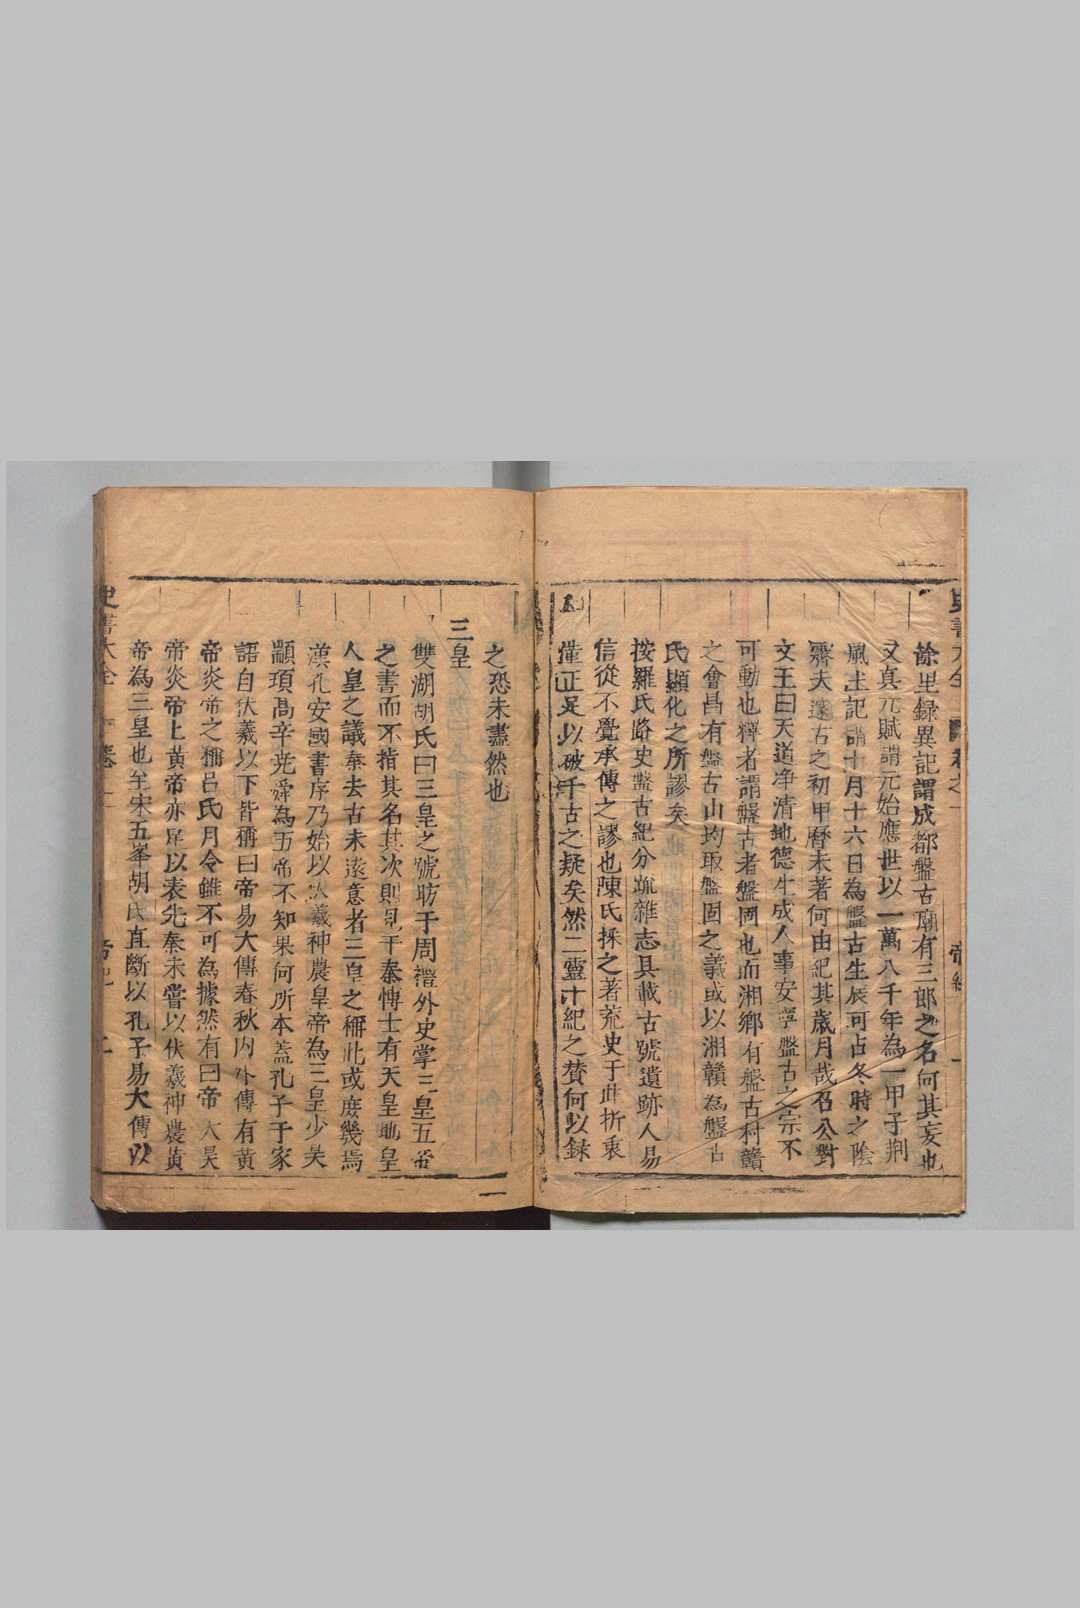 餘里録異記謂成都盤古廟有三郎之名何其妄也
又真元賦謂元始應世以一萬八千年為一甲子荆
風土記謂十月十六日為盤古生辰可占冬時之陰
霽夫邃古之初甲曆未著何由紀其歲月哉召公對
文王曰天道净清地德生成人事安寧盤古之宗不
可動也釋者謂盤古者盤固也而湘鄉有盤古村贛
之會昌有盤古山均取盤固之義或以湘贛為盤古
氏顯化之所謬矣
按羅氏路史盤古紀分疏雜志具載古號遺跡人易
信從不覺承傳之謬也陳氏採之著荒史于此折衷
惟正足以破千古之疑矣然二靈十紀之賛何以録
之恐未盡然也
三皇
雙湖胡氏曰三皇之號昉于周禮外史掌三皇五帝
之書而不指其名其次則見于秦博士有天皇地皇
人皇之議秦去古未遠意者三皇之稱此或庶幾焉
漢孔安國書序乃始以伏羲神農皇帝為三皇少昊
顓頊高辛尭舜為五帝不知果何所本蓋孔子于家
語自伏羲以下皆稱曰帝易大傳春秋内外傳有黄
帝炎帝之稱吕氏月令雖不可為據然有曰帝大昊
帝炎帝上黄帝亦足以表先秦未嘗以伏羲神農黄
帝為三皇也至宋五峯胡氏直斷以孔子易大傳以
史書大全 卷之一 帝紀 一
史書大全 卷一 帝紀 二